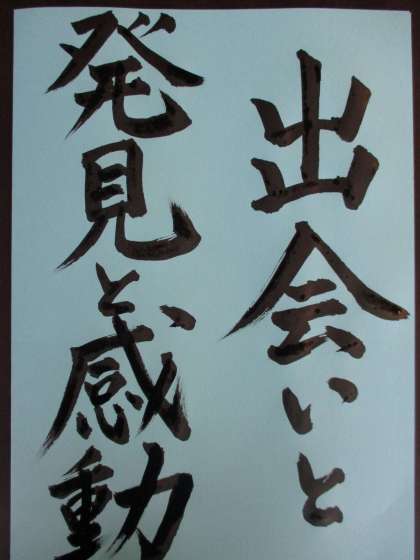 出会いと
発見と、感動